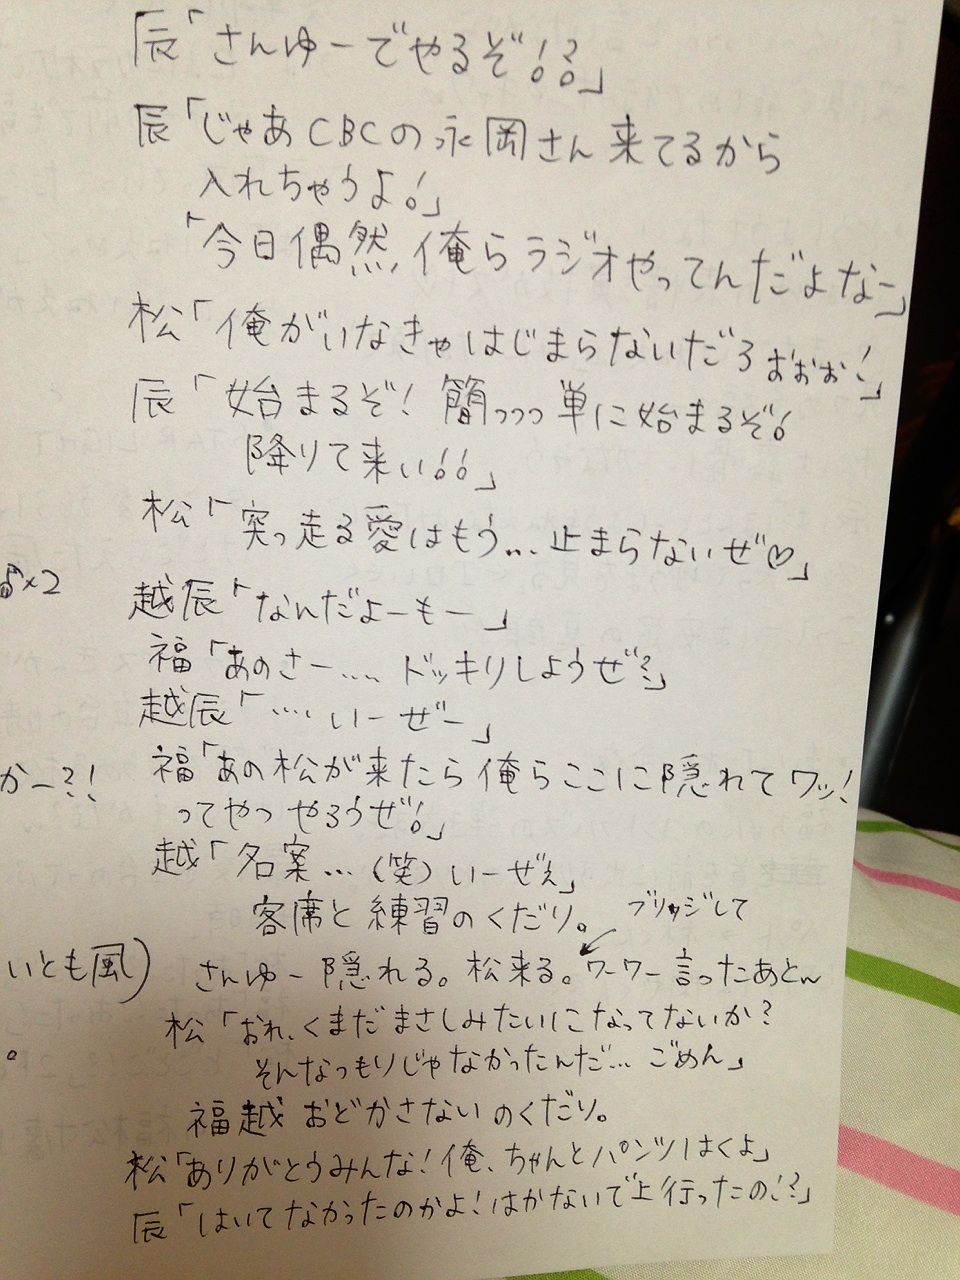 辰「さんゆーでやるぞ!?」
辰「じゃあCBCの永岡さん来てるから
入れちゃうよ!」
「今日偶然、俺らラジオやってんだよなー」
松「俺がいなきゃはじまらないだろぉぉぉ!」
辰「始まるぞ!簡っっっ単に始まるぞ!
降りて来い!!」
松「突っ走る愛はもう...止まらないぜ♡」
×2
越辰「なんだよーもー」
福「あのさー....ドッキリしようぜ?」
越辰「....いーぜー」
か-?!
福「あの松が来たら俺らここに隠れてワッ!
ってやつやろうぜ!」
越「名案...(笑)いーぜぇ」
客席と練習のくだり。
ブリッジして
いとも風)
さんゆー隠れる。松来る。ワーワー言ったあとん
松「おれ、くまだまさしみたいになってないか?
そんなつもりじゃなかったんだ...ごめん」
。
福越 おどかさないのくだり。
松「ありがとうみんな!俺、ちゃんとパンツはくよ」
辰「はいてなかったのかよ!はかないで上行ったの!?」